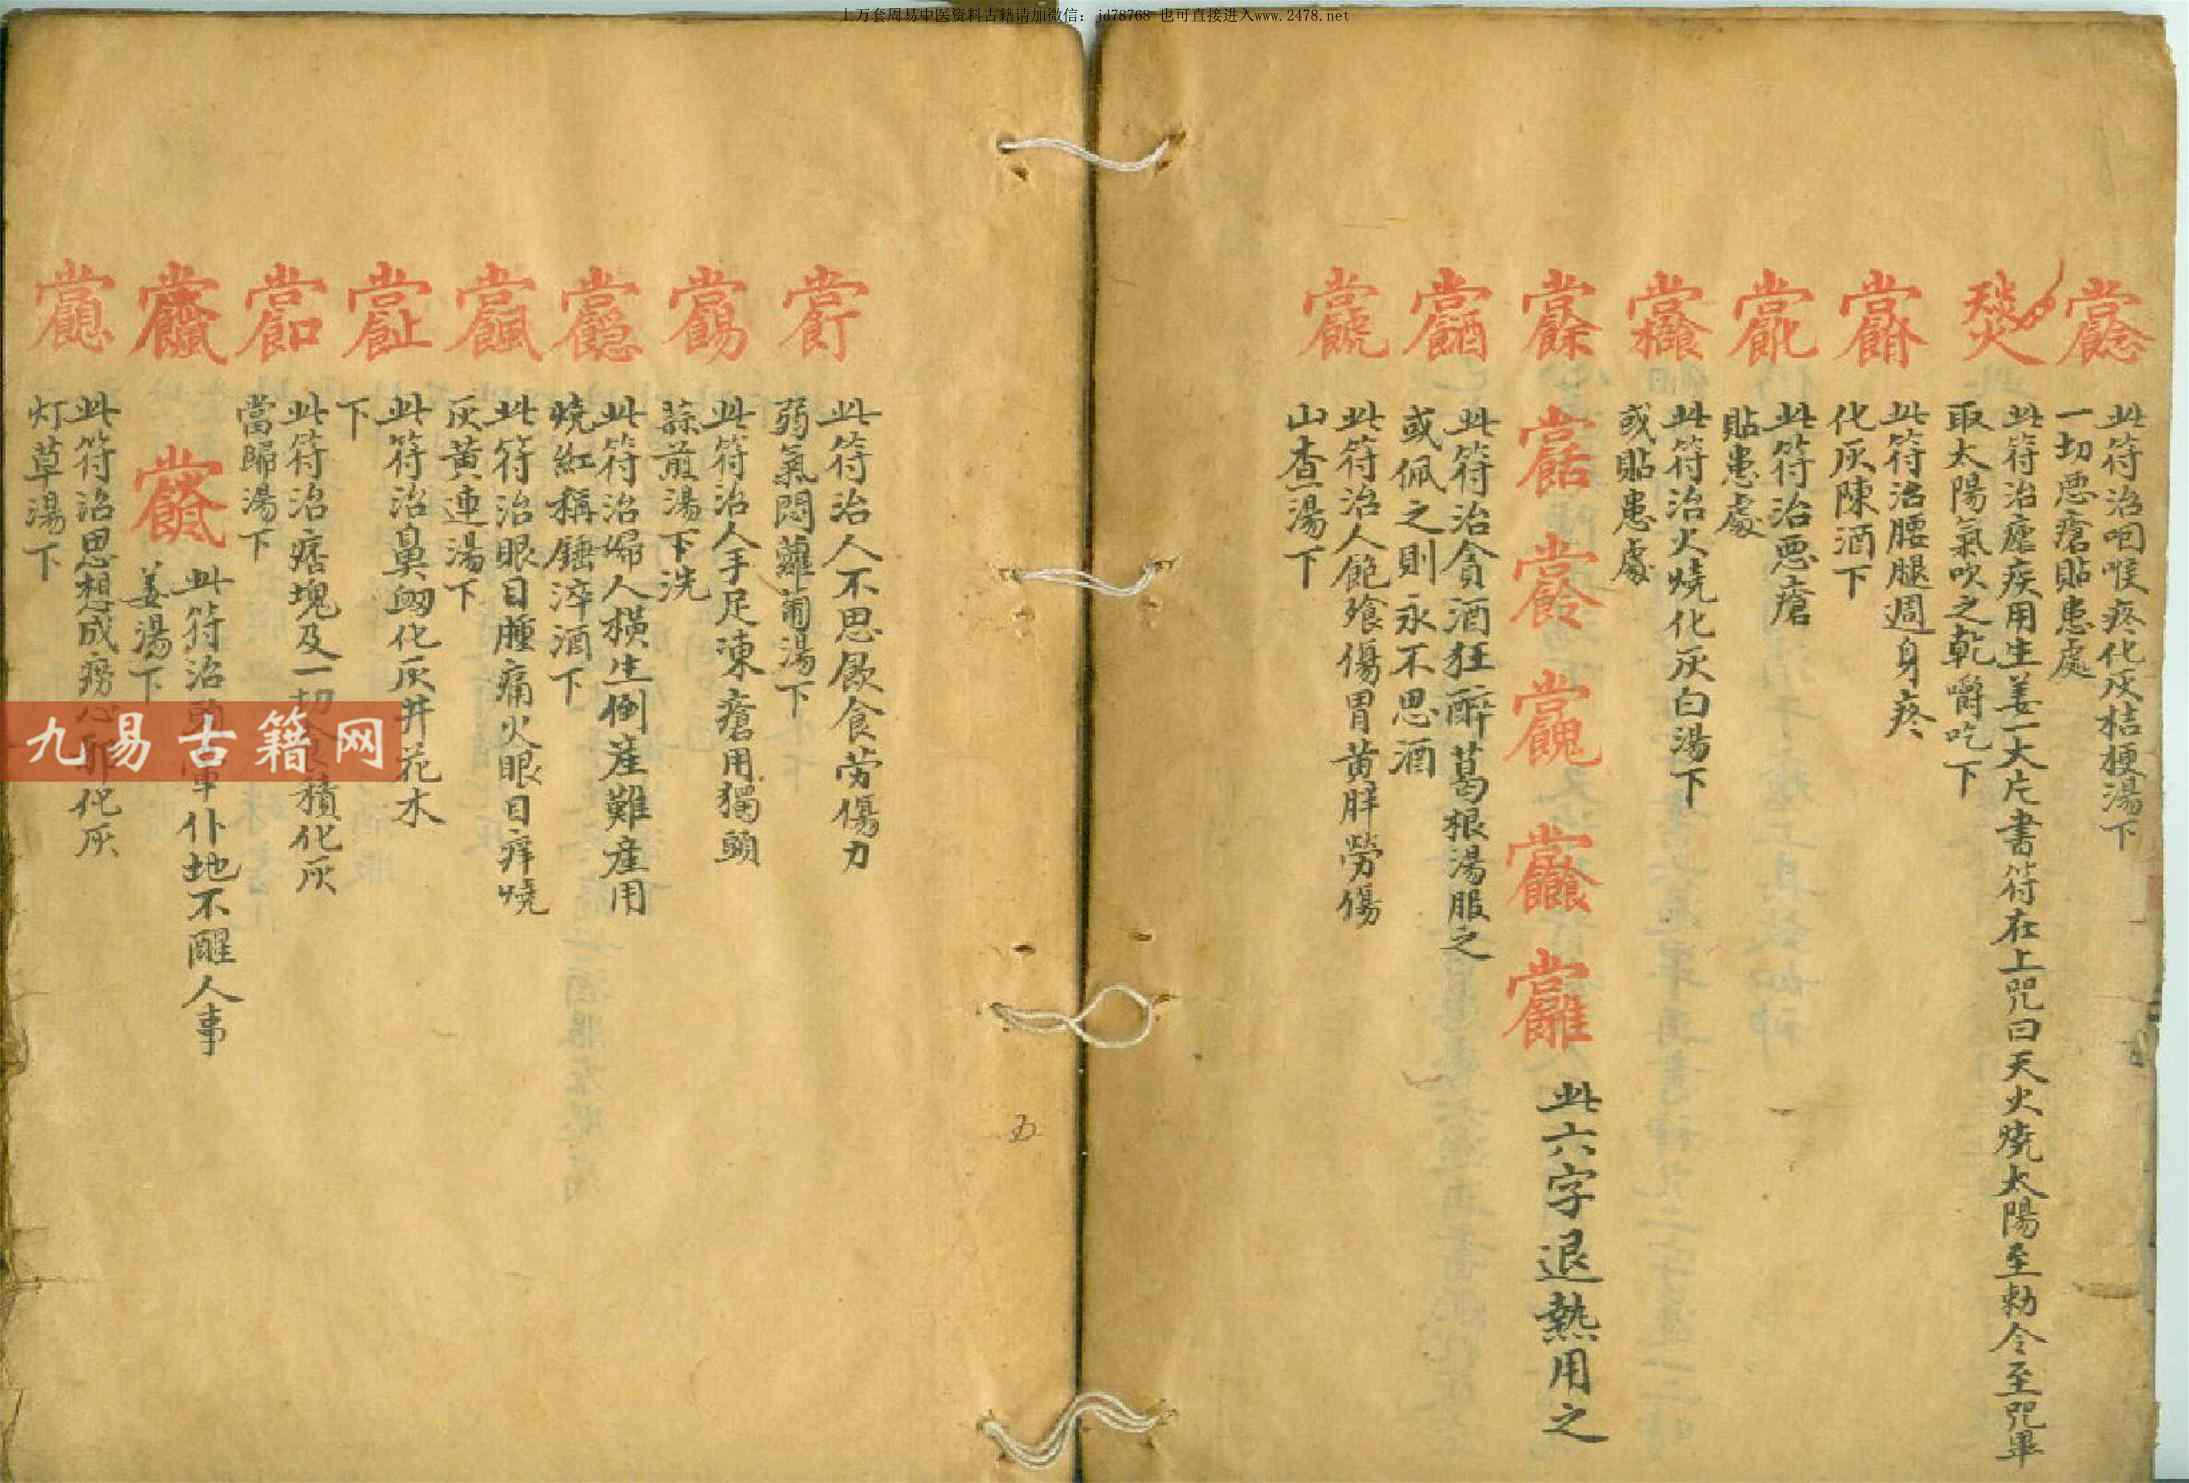 上万套周易中医资料古籍请加微信：jd78768 也可直接进入www.2478.net
此符治咽喉疼化灰桔梗湯下
一切惡瘡貼患處
此符治瘧疾用生姜一大片書符在上咒曰天火燒太陽至勅令至咒畢
取太陽氣吹之乾嚼吃下
此符治腰腿週身疼
化灰陳酒下
此符治惡瘡
貼患處
此符治火燒化灰白湯下
或貼患處
此六字退熱用之
此符治貪酒狂醉葛根湯服之
或佩之則永不思酒
此符治人飽飱傷胃黃胖勞傷
山查湯下
此符治人不思飲食劳傷力
弱氣悶蘿蔔湯下
此符治人手足凍瘡用獨頭
蒜煎湯下洗
此符治婦人橫生倒產難產用
燒紅稱錘淬酒下
此符治眼目腫痛火眼目痒燒
灰黃連湯下
此符治鼻衂化灰井花水
下
此符治痞塊及一切食積化灰
當歸湯下
此符治仆地不醒人事
姜湯下
此符治思想成癆心化灰
灯草湯下
九易古籍网